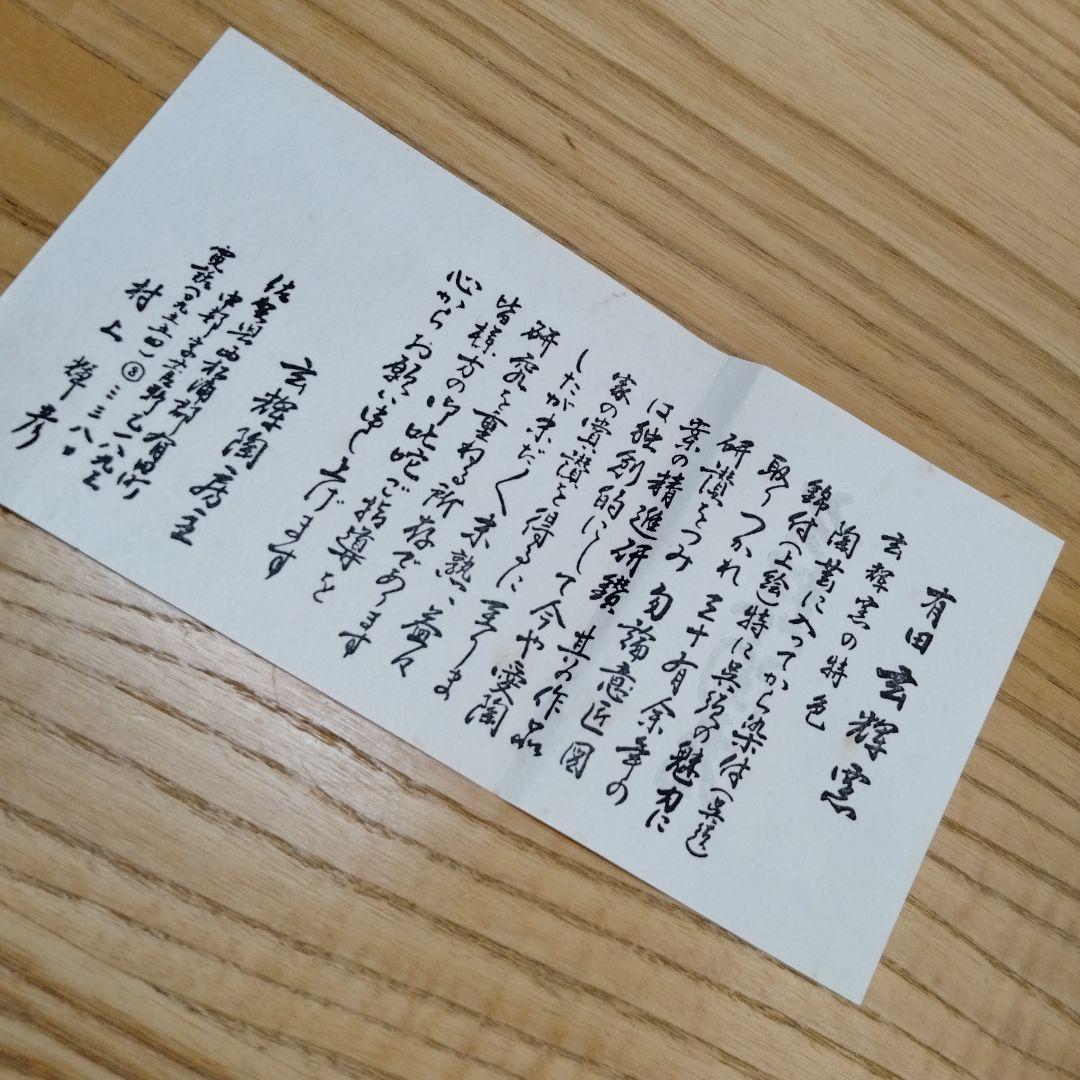 有田 玄輝窯
玄輝窯の特色
陶芸に入ってから染付(呉須)
錦付(上絵)特に呉須の魅力に
取りつかれ三十有余年の
研讃をつみ勿論意匠図
案の精進研鑚其の作品
は独創的にして今や愛陶
家の賞讃を得るに至りま
したが未だ〱未熟、益々
研究を重ねる所存であります
皆様方の叱咤ご指導を
心からお願い申し上げます
玄輝陶房主
佐賀県西松浦郡有田町
村上輝彦